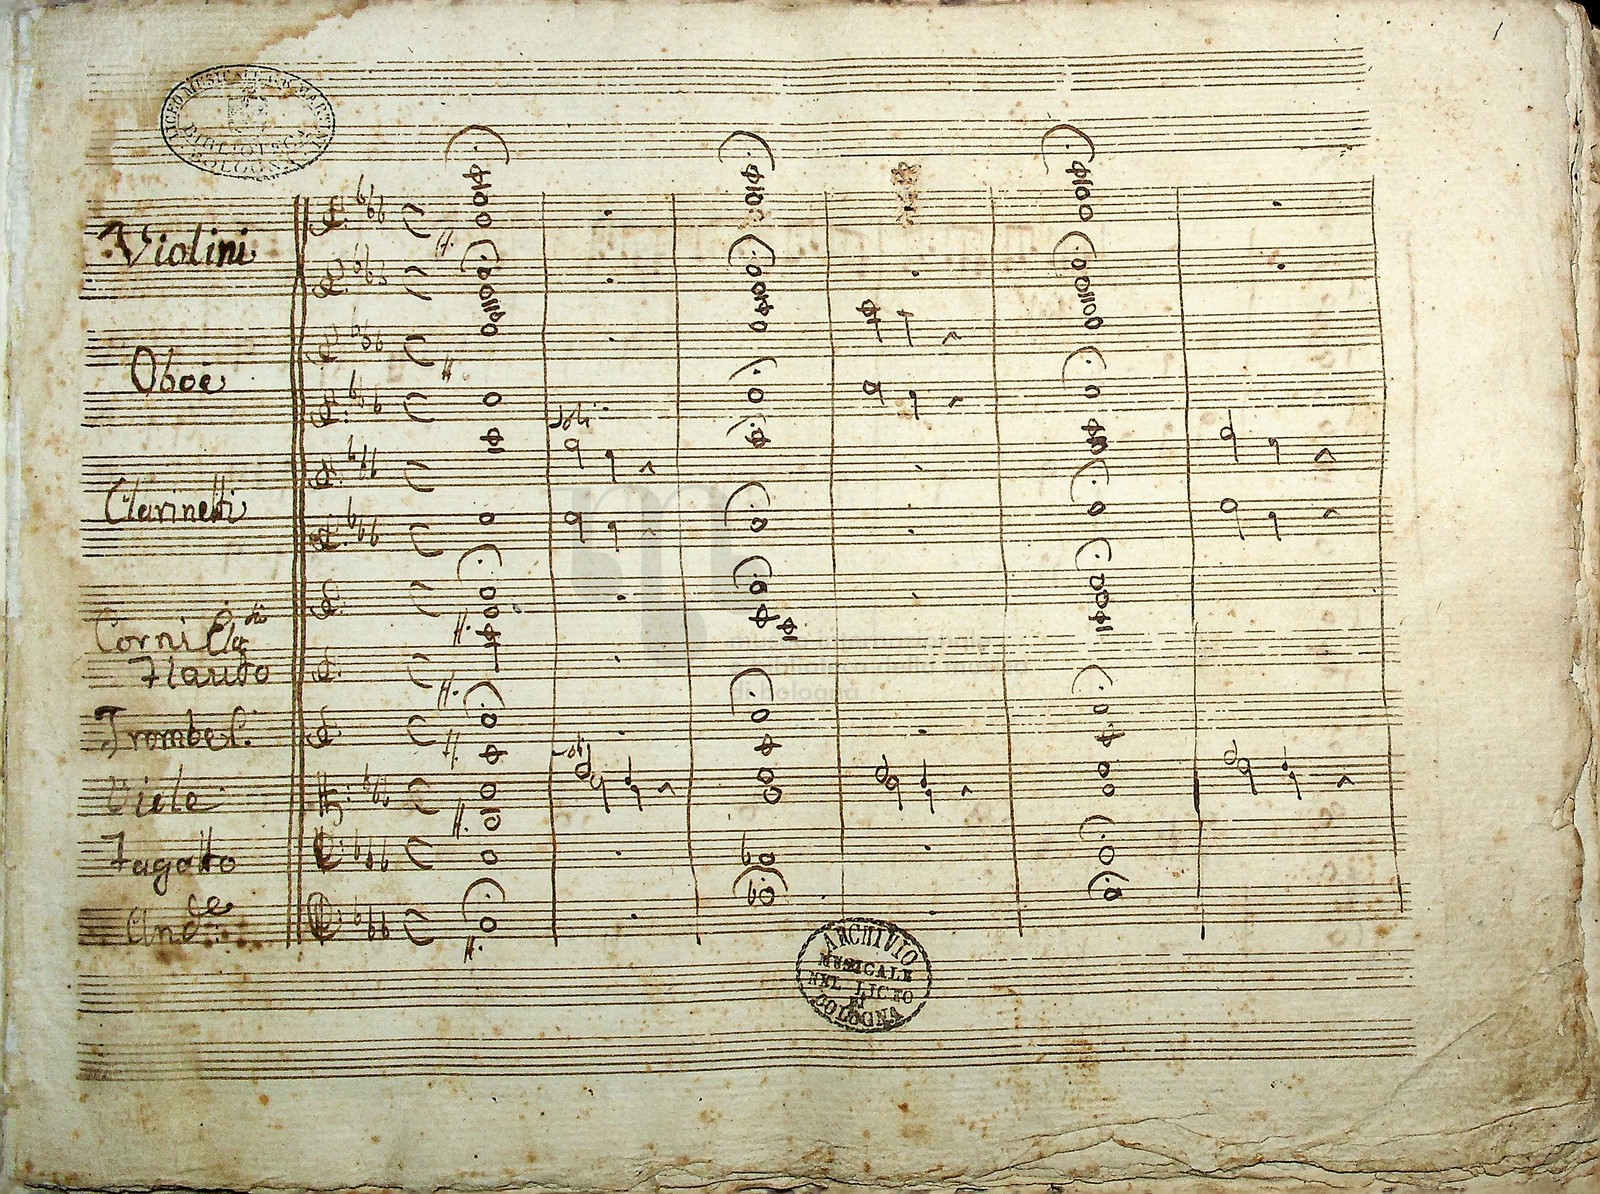 1
LICEO MUSICALE G.B. MARTINI
BIBLIOTECA
BOLOGNA
Violini
Oboè
soli
Clarinetti
Corni
Flauto
soli
Viole
Fagotto
And.e
museo internazionale
e biblioteca della musica
di bologna
ARCHIVIO
MUSICALE
NEL LICEO
DI
BOLOGNA